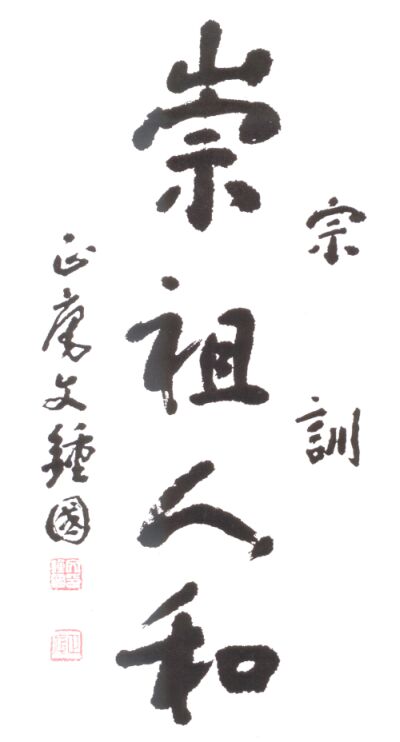 宗訓
崇祖人和
正文鍾國